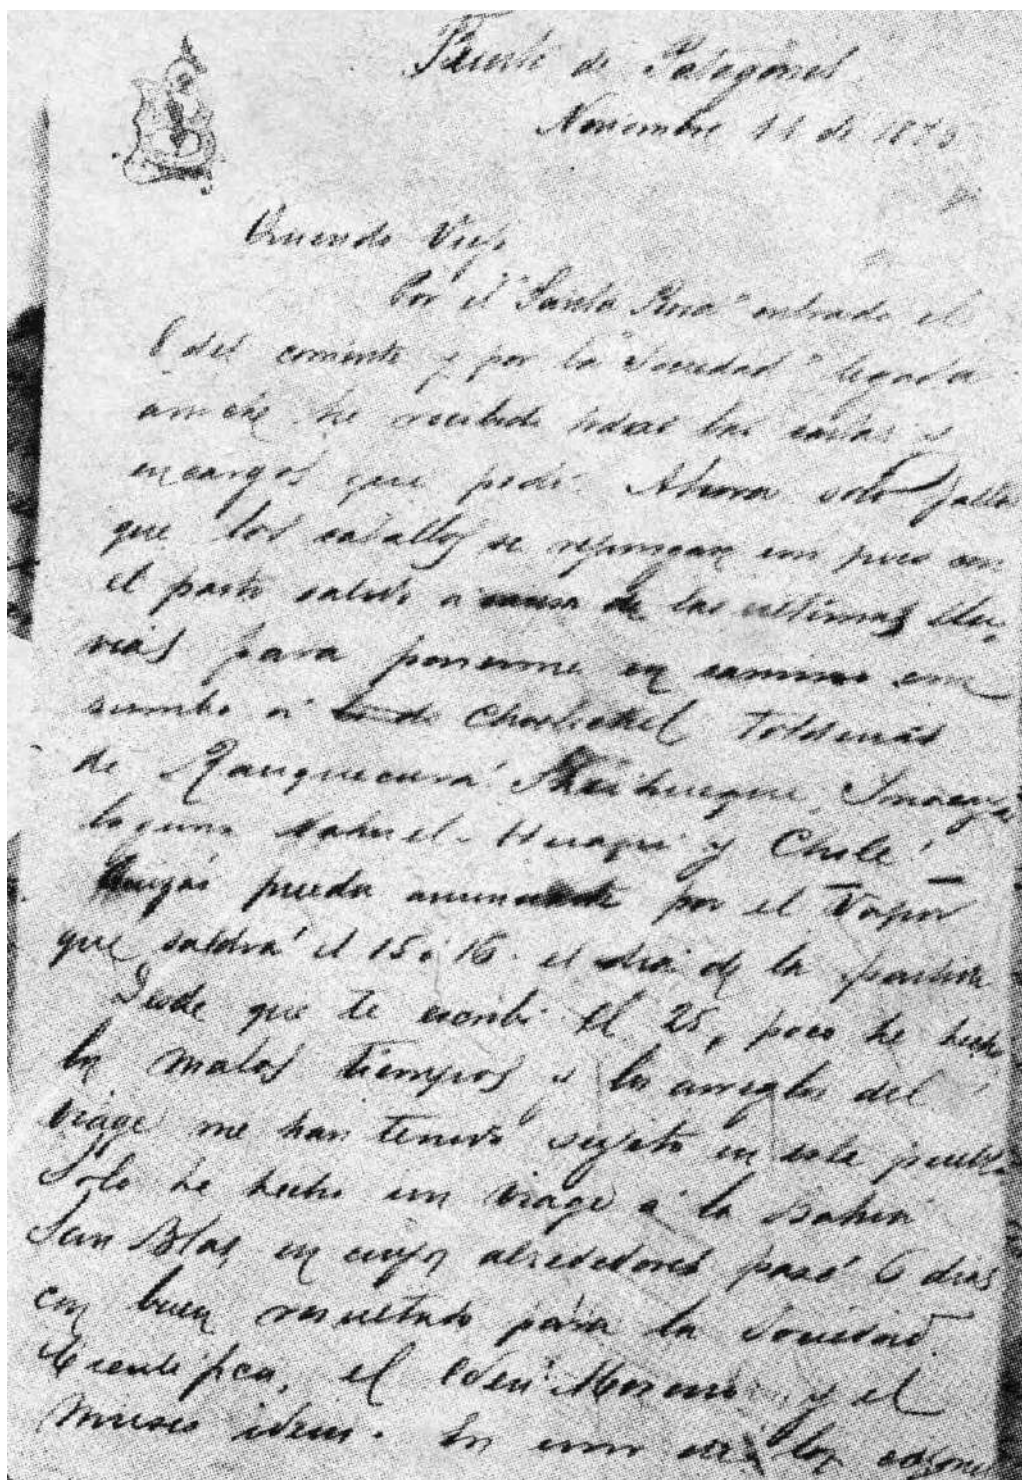 Fuerte de Patagones
Noviembre 11 de 1875
Querido Viejo
Por el "Santa Rosa" entrado el
6 del corriente y por la "Sociedad" llegada
anoche he recibido todas las cartas y
encargos que pedí. Ahora solo falta
que los caballos se repongan un poco con
el pasto salido a causa de las ultimas llu-
vias para ponerme en camino con
rumbo á de Tolderias
de Ranquecurá Shaihueque,
laguna Nahuel-Huapi y Chile!
Quizás pueda anunciarte por el Vapor
que saldrá el 15 ó 16 el dia de la partida
Desde que te escribí el 25, poco he hecho
los malos tiempos y los arreglos del
viage me han tenido sujeto en este pueblo
Solo he hecho un viage á la Bahia
San Blas en cuyos alrededores pasé 6 dias
con buen resultado para la Sociedad
Cientifica, el Moreno y el
Museo idem. En uno de los